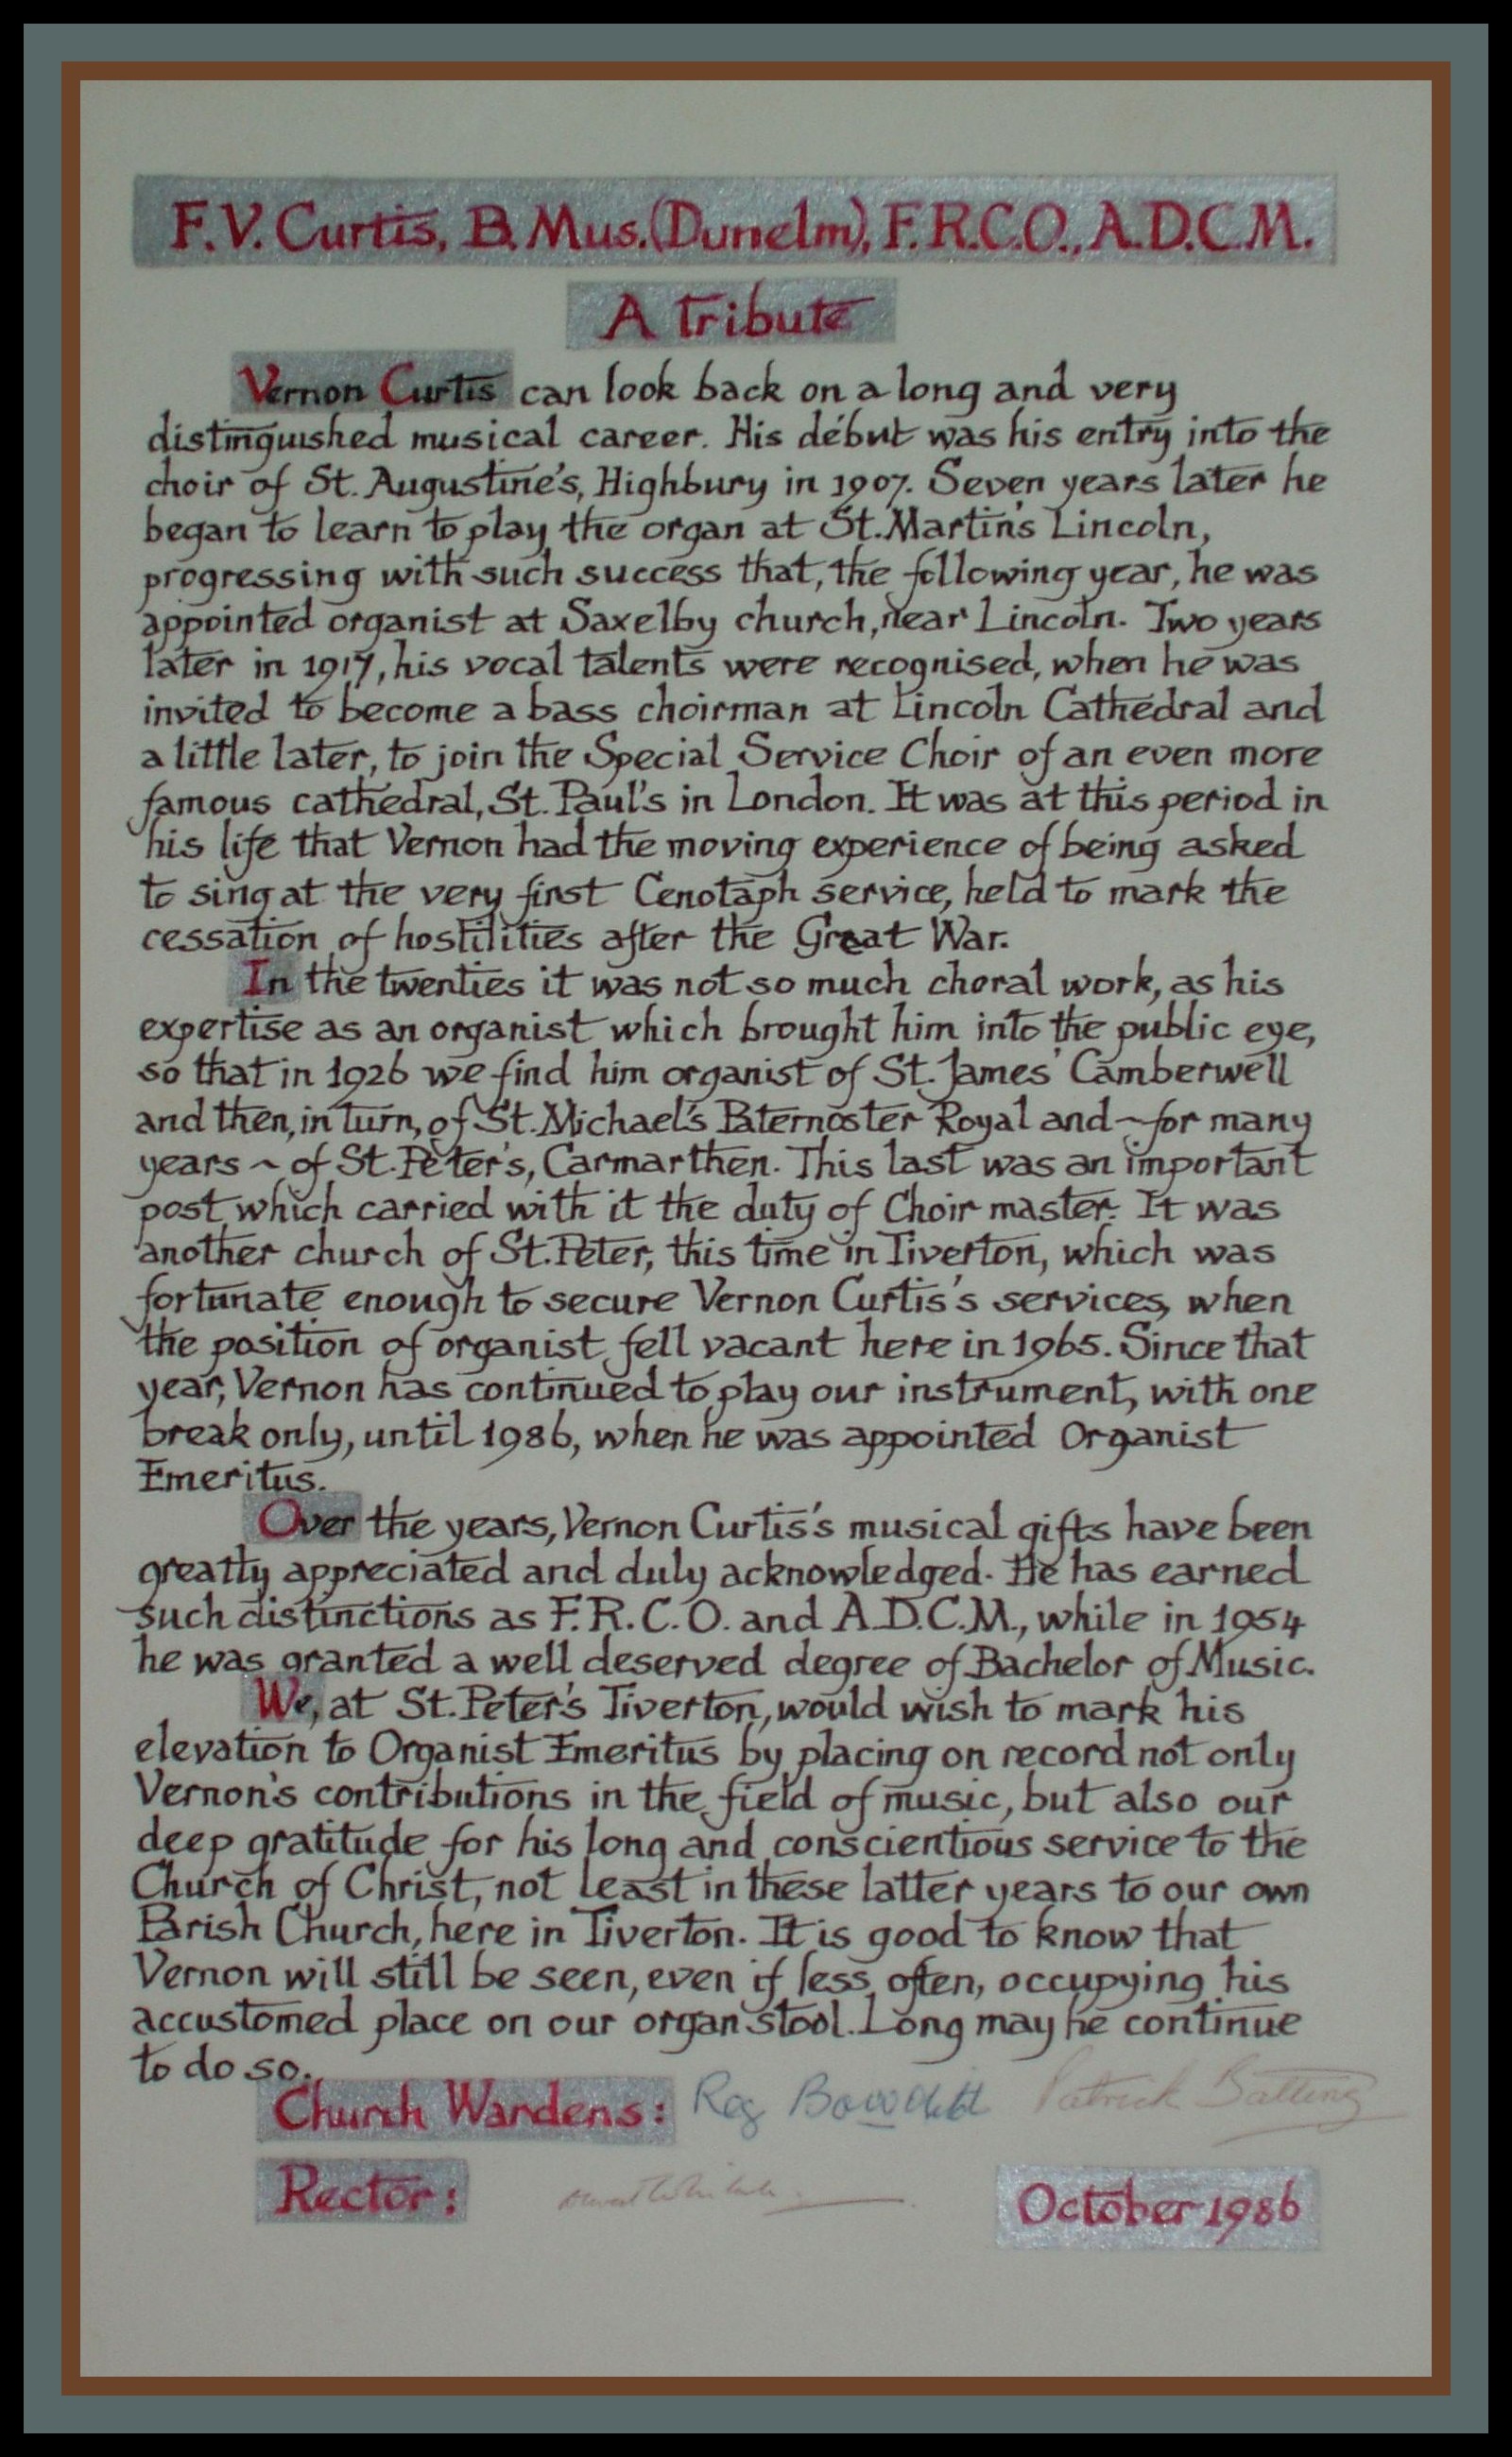 F.V. Curtis, B. Mus.(Dunelm), F.R.C.O., A.D.C.M.
A Tribute
Vernon Curtis can look back on a long and very
distinguished musical career. His début was his entry into the
choir of St. Augustine's, Highbury in 1907. Seven years later he
began to learn to play the organ at St. Martin's Lincoln,
progressing with such success that, the following year, he was
appointed organist at Saxelby church, near Lincoln. Two years
later in 1917, his vocal talents were recognised, when he was
invited to become a bass choirman at Lincoln Cathedral and
a little later, to join the Special Service Choir of an even more
famous cathedral, St. Paul's in London. It was at this period in
his life that Vernon had the moving experience of being asked
to sing at the very first Cenotaph service, held to mark the
cessation of hostilities after the Great War.
In the twenties it was not so much choral work, as his
expertise as an organist which brought him into the public eye,
so that in 1926 we find him organist of St. James' Camberwell
and then, in turn, of St. Michael's Paternoster Royal and ~ for many
years ~ of St. Peter's, Carmarthen. This last was an important
post which carried with it the duty of Choir master. It was
another church of St. Peter, this time in Tiverton, which was
fortunate enough to secure Vernon Curtis's services, when
the position of organist fell vacant here in 1965. Since that
year, Vernon has continued to play our instrument, with one
break only, until 1986, when he was appointed Organist
Emeritus.
Over the years, Vernon Curtis's musical gifts have been
greatly appreciated and duly acknowledged. He has earned
such distinctions as F.R.C.O. and A.D.C.M., while in 1954
he was granted a well deserved degree of Bachelor of Music.
We, at St. Peter's Tiverton, would wish to mark his
elevation to Organist Emeritus by placing on record not only
Vernon's contributions in the field of music, but also our
deep gratitude for his long and conscientious service to the
Church of Christ, not least in these latter years to our own
Parish Church, here in Tiverton. It is good to know that
Vernon will still be seen, even if less often, occupying his
accustomed place on our organ stool. Long may he continue
to do so.
Church Wardens: Reg Patrick
Rector:
October 1986